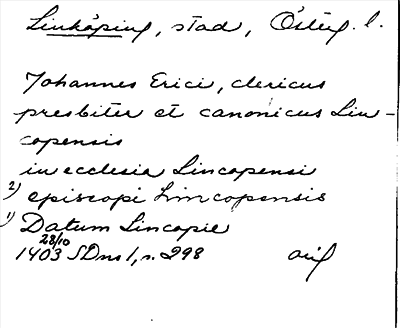 Linköping, stad, Österg. l.
Johannes Erici, clericus
presbiter et canonicus Lin-
copensis
in ecclesia Lincopensi
2) episcopi Lincopensis
1) Datum Lincopie
28/10
1403 SDns 1, s. 298 avs